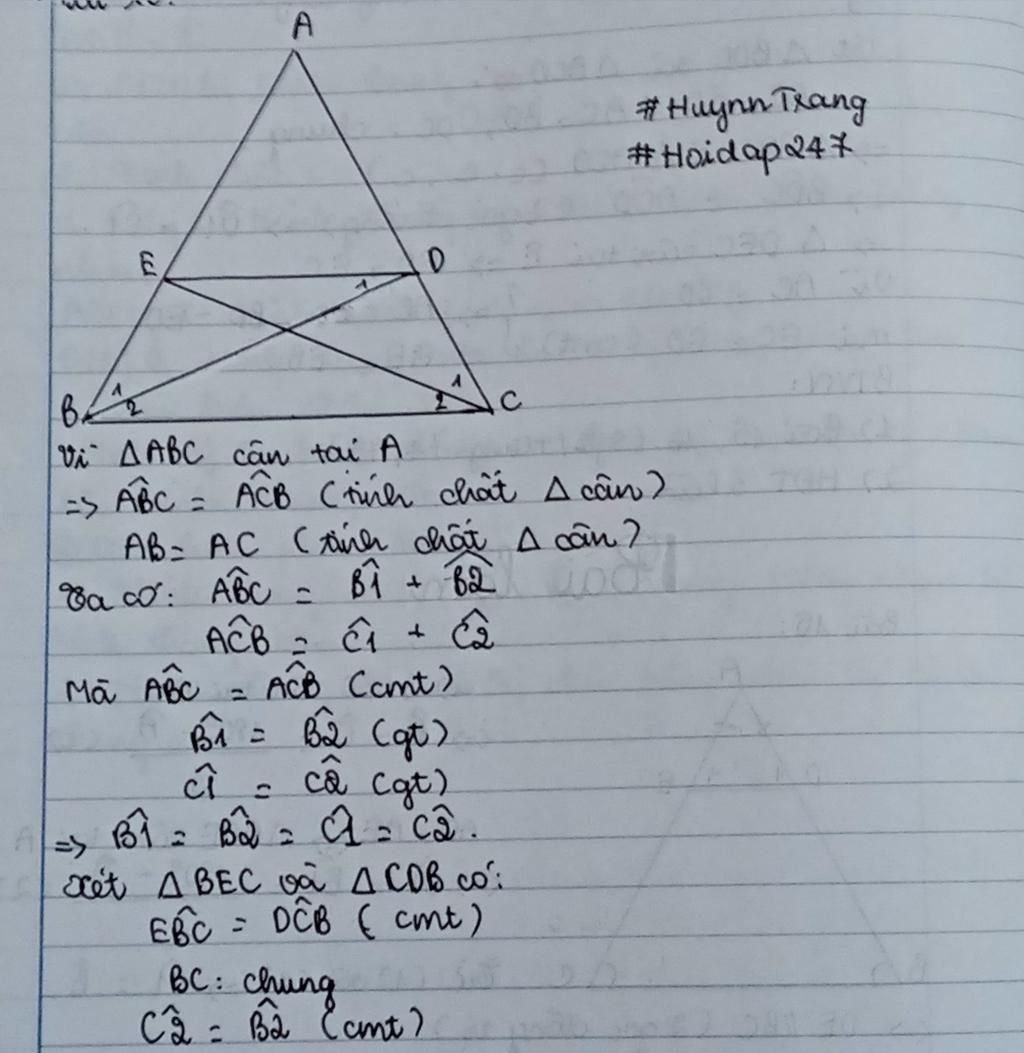 A
#HuynnTrang
#Hoidap247
E
D
1
1
2
1
2
B
C
Vì ΔABC cân tai A
=> AB̂C = AĈB (tính chất Δ cân)
AB = AC (tính chất Δ cân)
Ta có: AB̂C = B̂1 + B̂2
AĈB = Ĉ1 + Ĉ2
Mà AB̂C = AĈB (cmt)
B̂1 = B̂2 (gt)
Ĉ1 = Ĉ2 (gt)
=> B̂1 = B̂2 = Ĉ1 = Ĉ2.
Xét ΔBEC và ΔCDB có:
EB̂C = DĈB (cmt)
BC: chung
Ĉ2 = B̂2 (cmt)